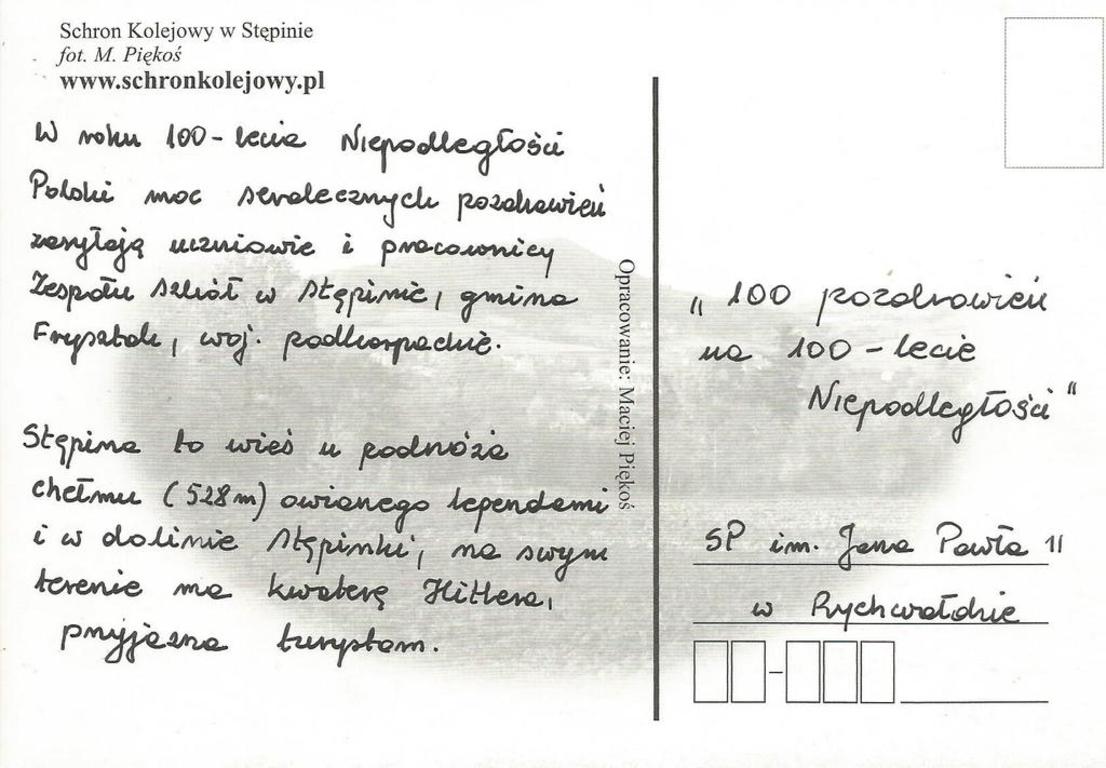 Schron Kolejowy w Stępinie
fot. M. Piękoś
www.schronkolejowy.pl
W roku 100-lecia Niepodległości
Polski moc serdecznych pozdrowień
zasyłają uczniowie i pracownicy
Zespołu Szkół w Stępinie, gmina
Frysztak, woj. podkarpackie.
Stępina to wieś u podnóża
chełmu (528m) owianego legendami
i w dolinie Stępinki, na swym
terenie ma kwaterę Hitlera,
przyjazna turystom.
Opracowanie: Maciej Piękoś
„100 pozdrowień
na 100-lecie
Niepodległości"
SP im. Jana Pawła II
w Rychwałdzie